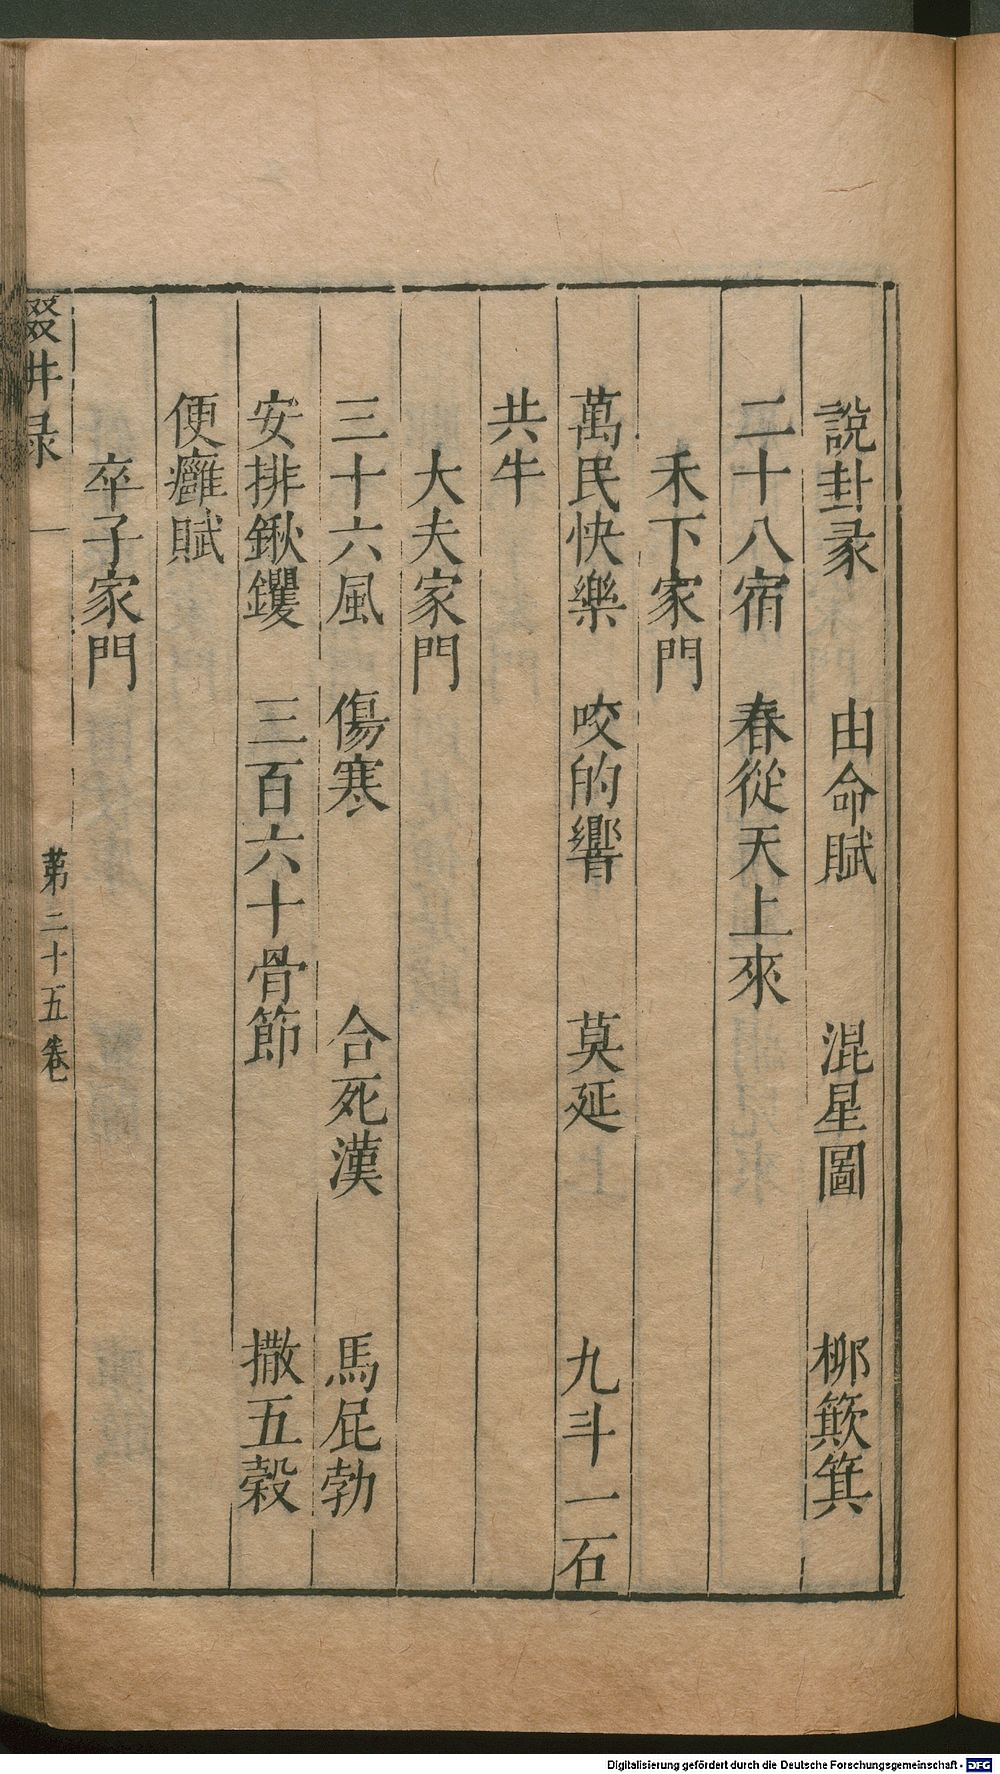 說卦彖　由命賦　混星圖　柳簸箕
二十八宿　春從天上來
禾下家門
萬民快樂　咬的響　莫延　九斗一石
共牛
大夫家門
三十六風　傷寒　合死漢　馬屁勃
安排鍬钁　三百六十骨節　撒五穀
便癰賦
卒子家門
輟畊录　一　苐二十五卷
Digitalisierung gefördert durch die Deutsche Forschungsgemeinschaft - DFG